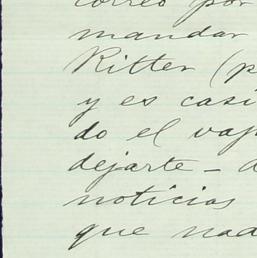 correo por
mandar
Ritter (p
y es casi
do el vap
dejarte — d
noticias
que nad